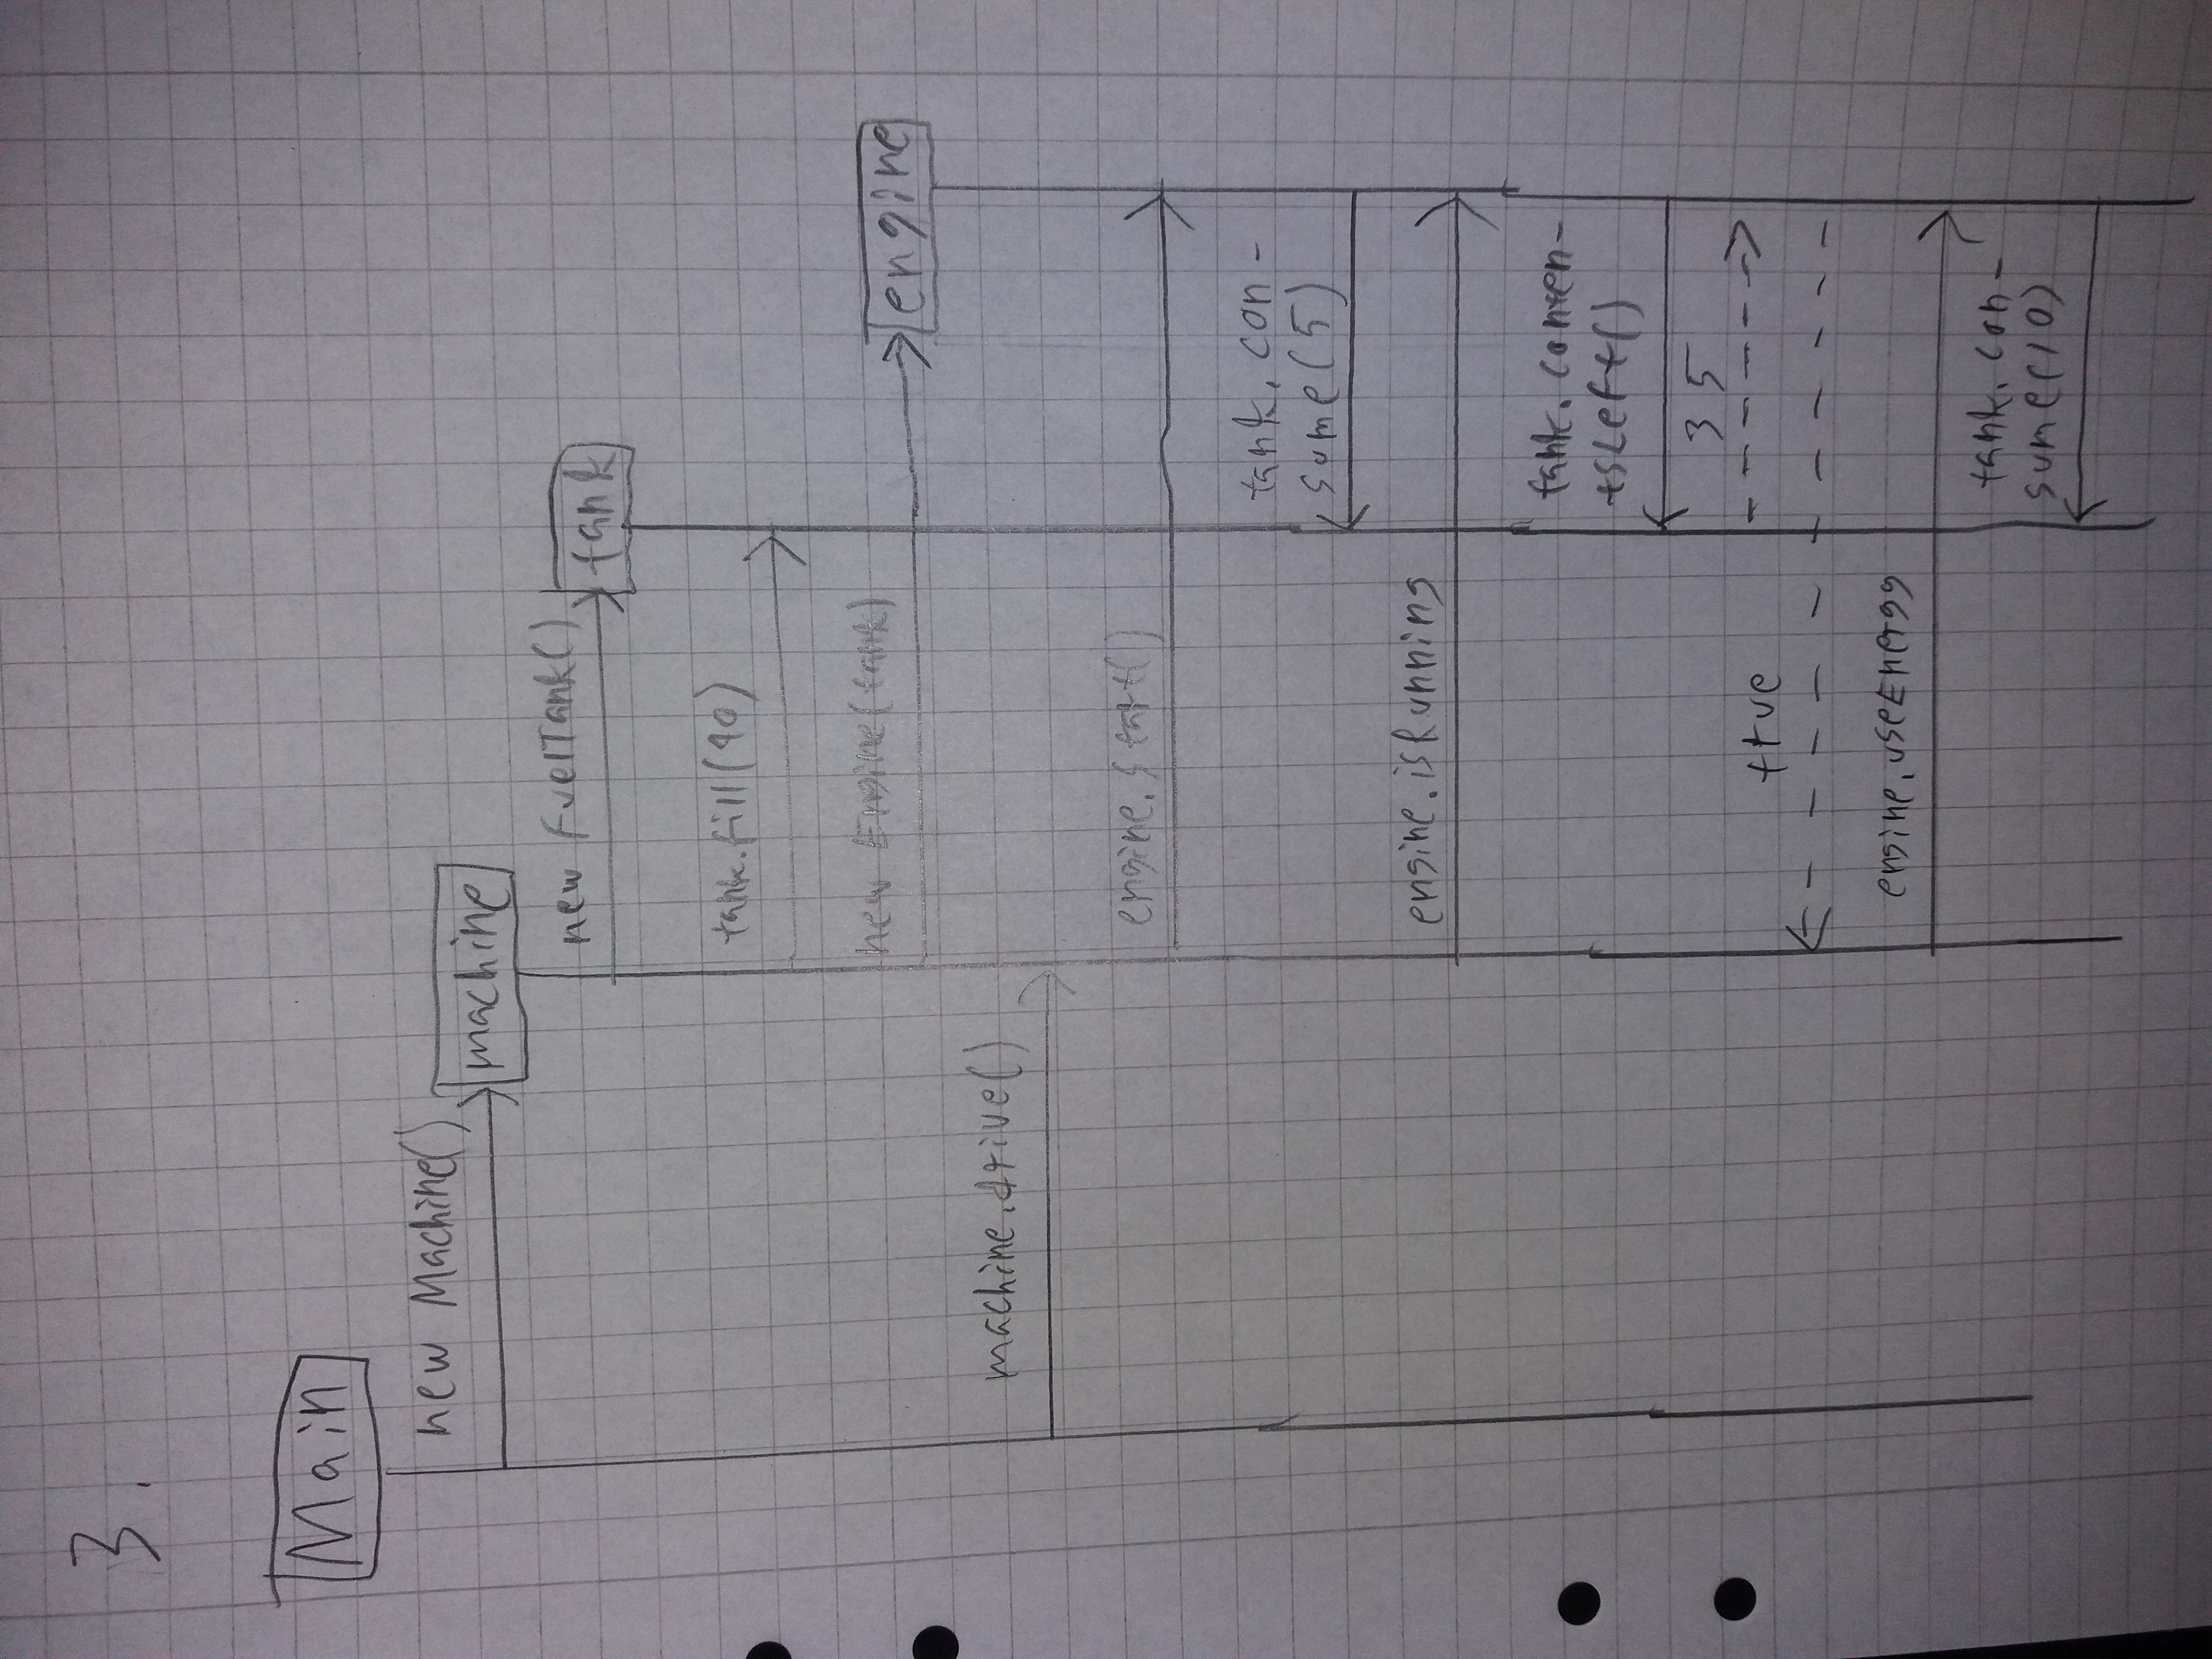 3.
Main
new Machine()
machine
new FuelTank()
tank
tank.fill(40)
new Engine(tank)
engine
machine.drive()
engine.start()
tank.con-
sume(5)
engine.isRunning
tank.conten-
tsLeft()
35
true
engine.useEnergy
tank.con-
sume(10)